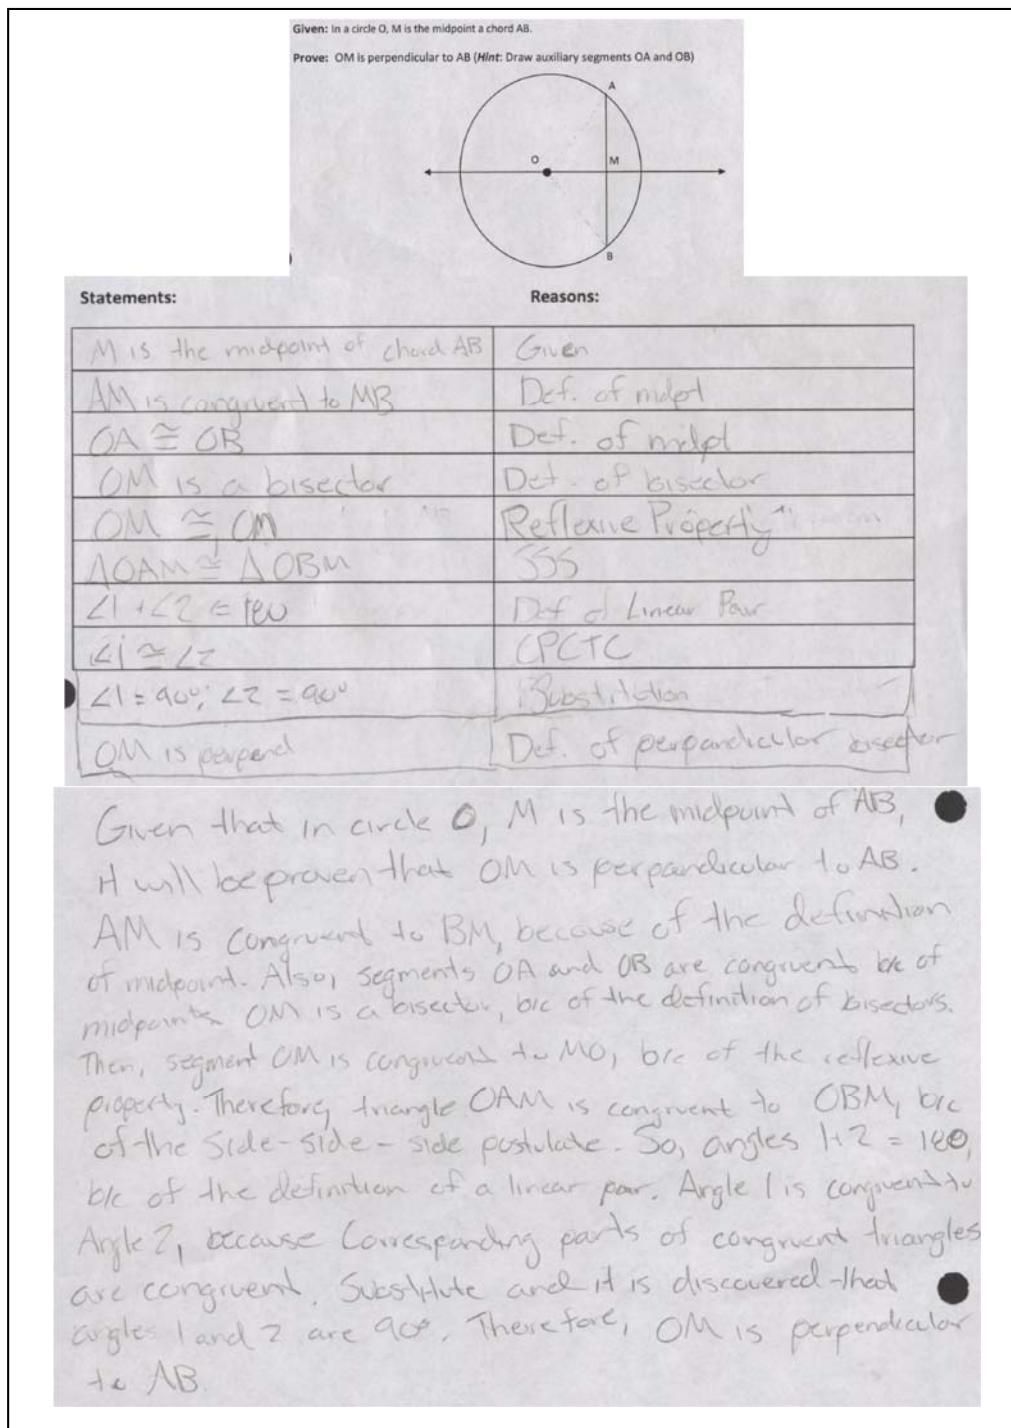 Given: In a circle O, M is the midpoint a chord AB.
Prove: OM is perpendicular to AB (Hint: Draw auxiliary segments OA and OB)
A
O
M
B
Statements: Reasons:
M is the midpoint of chord AB Given
AM is congruent to MB Def. of mdpt
OA ≅ OB Def. of mdpt
OM is a bisector Def. of bisector
OM ≅ OM Reflexive Property
ΔOAM ≅ ΔOBM SSS
∠1 + ∠2 = 180 Def of Linear Pair
∠1 ≅ ∠2 CPCTC
∠1 = 90°; ∠2 = 90° Substitution
OM is perpend Def. of perpandicular bisector
Given that in circle O, M is the midpoint of AB,
it will be proven that OM is perpandicular to AB.
AM is congruent to BM, because of the definition
of midpoint. Also, segments OA and OB are congruent b/c of
midpoints. OM is a bisector, b/c of the definition of bisectors.
Then, segment OM is congruent to MO, b/c of the reflexive
property. Therefore, triangle OAM is congruent to OBM, b/c
of the Side-side-side postulate. So, angles 1+2 = 180,
b/c of the definition of a linear pair. Angle 1 is congruent to
Angle 2, because Corresponding parts of congruent triangles
are congruent. Substitute and it is discovered that
angles 1 and 2 are 90°. Therefore, OM is perpendicular
to AB.